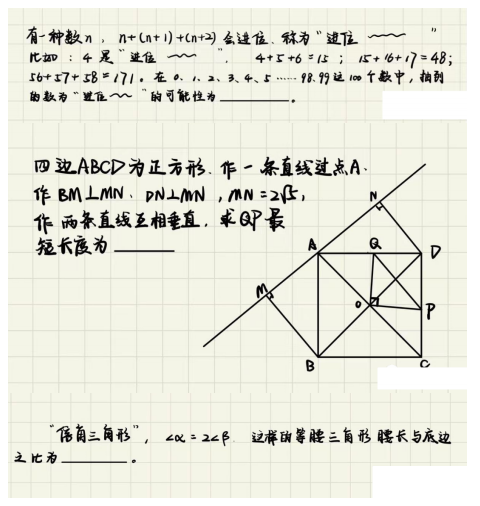 有一种数n, n+(n+1)+(n+2)会进位.称为"进位﹏﹏"
比如:4是"进位﹏﹏". 4+5+6=15; 15+16+17=48;
56+57+58=171。在0、1、2、3、4、5……98.99这100个数中,抽到
的数为"进位﹏﹏"的可能性为______。
四边ABCD为正方形.作一条直线过点A.
作BM⊥MN、DN⊥MN,MN=2√5,
作两条直线互相垂直,求QP最
短长度为______
N
A
Q
D
M
O
P
B
C
"倍角三角形",∠α=2∠β.这样的等腰三角形腰长与底边
之比为______。